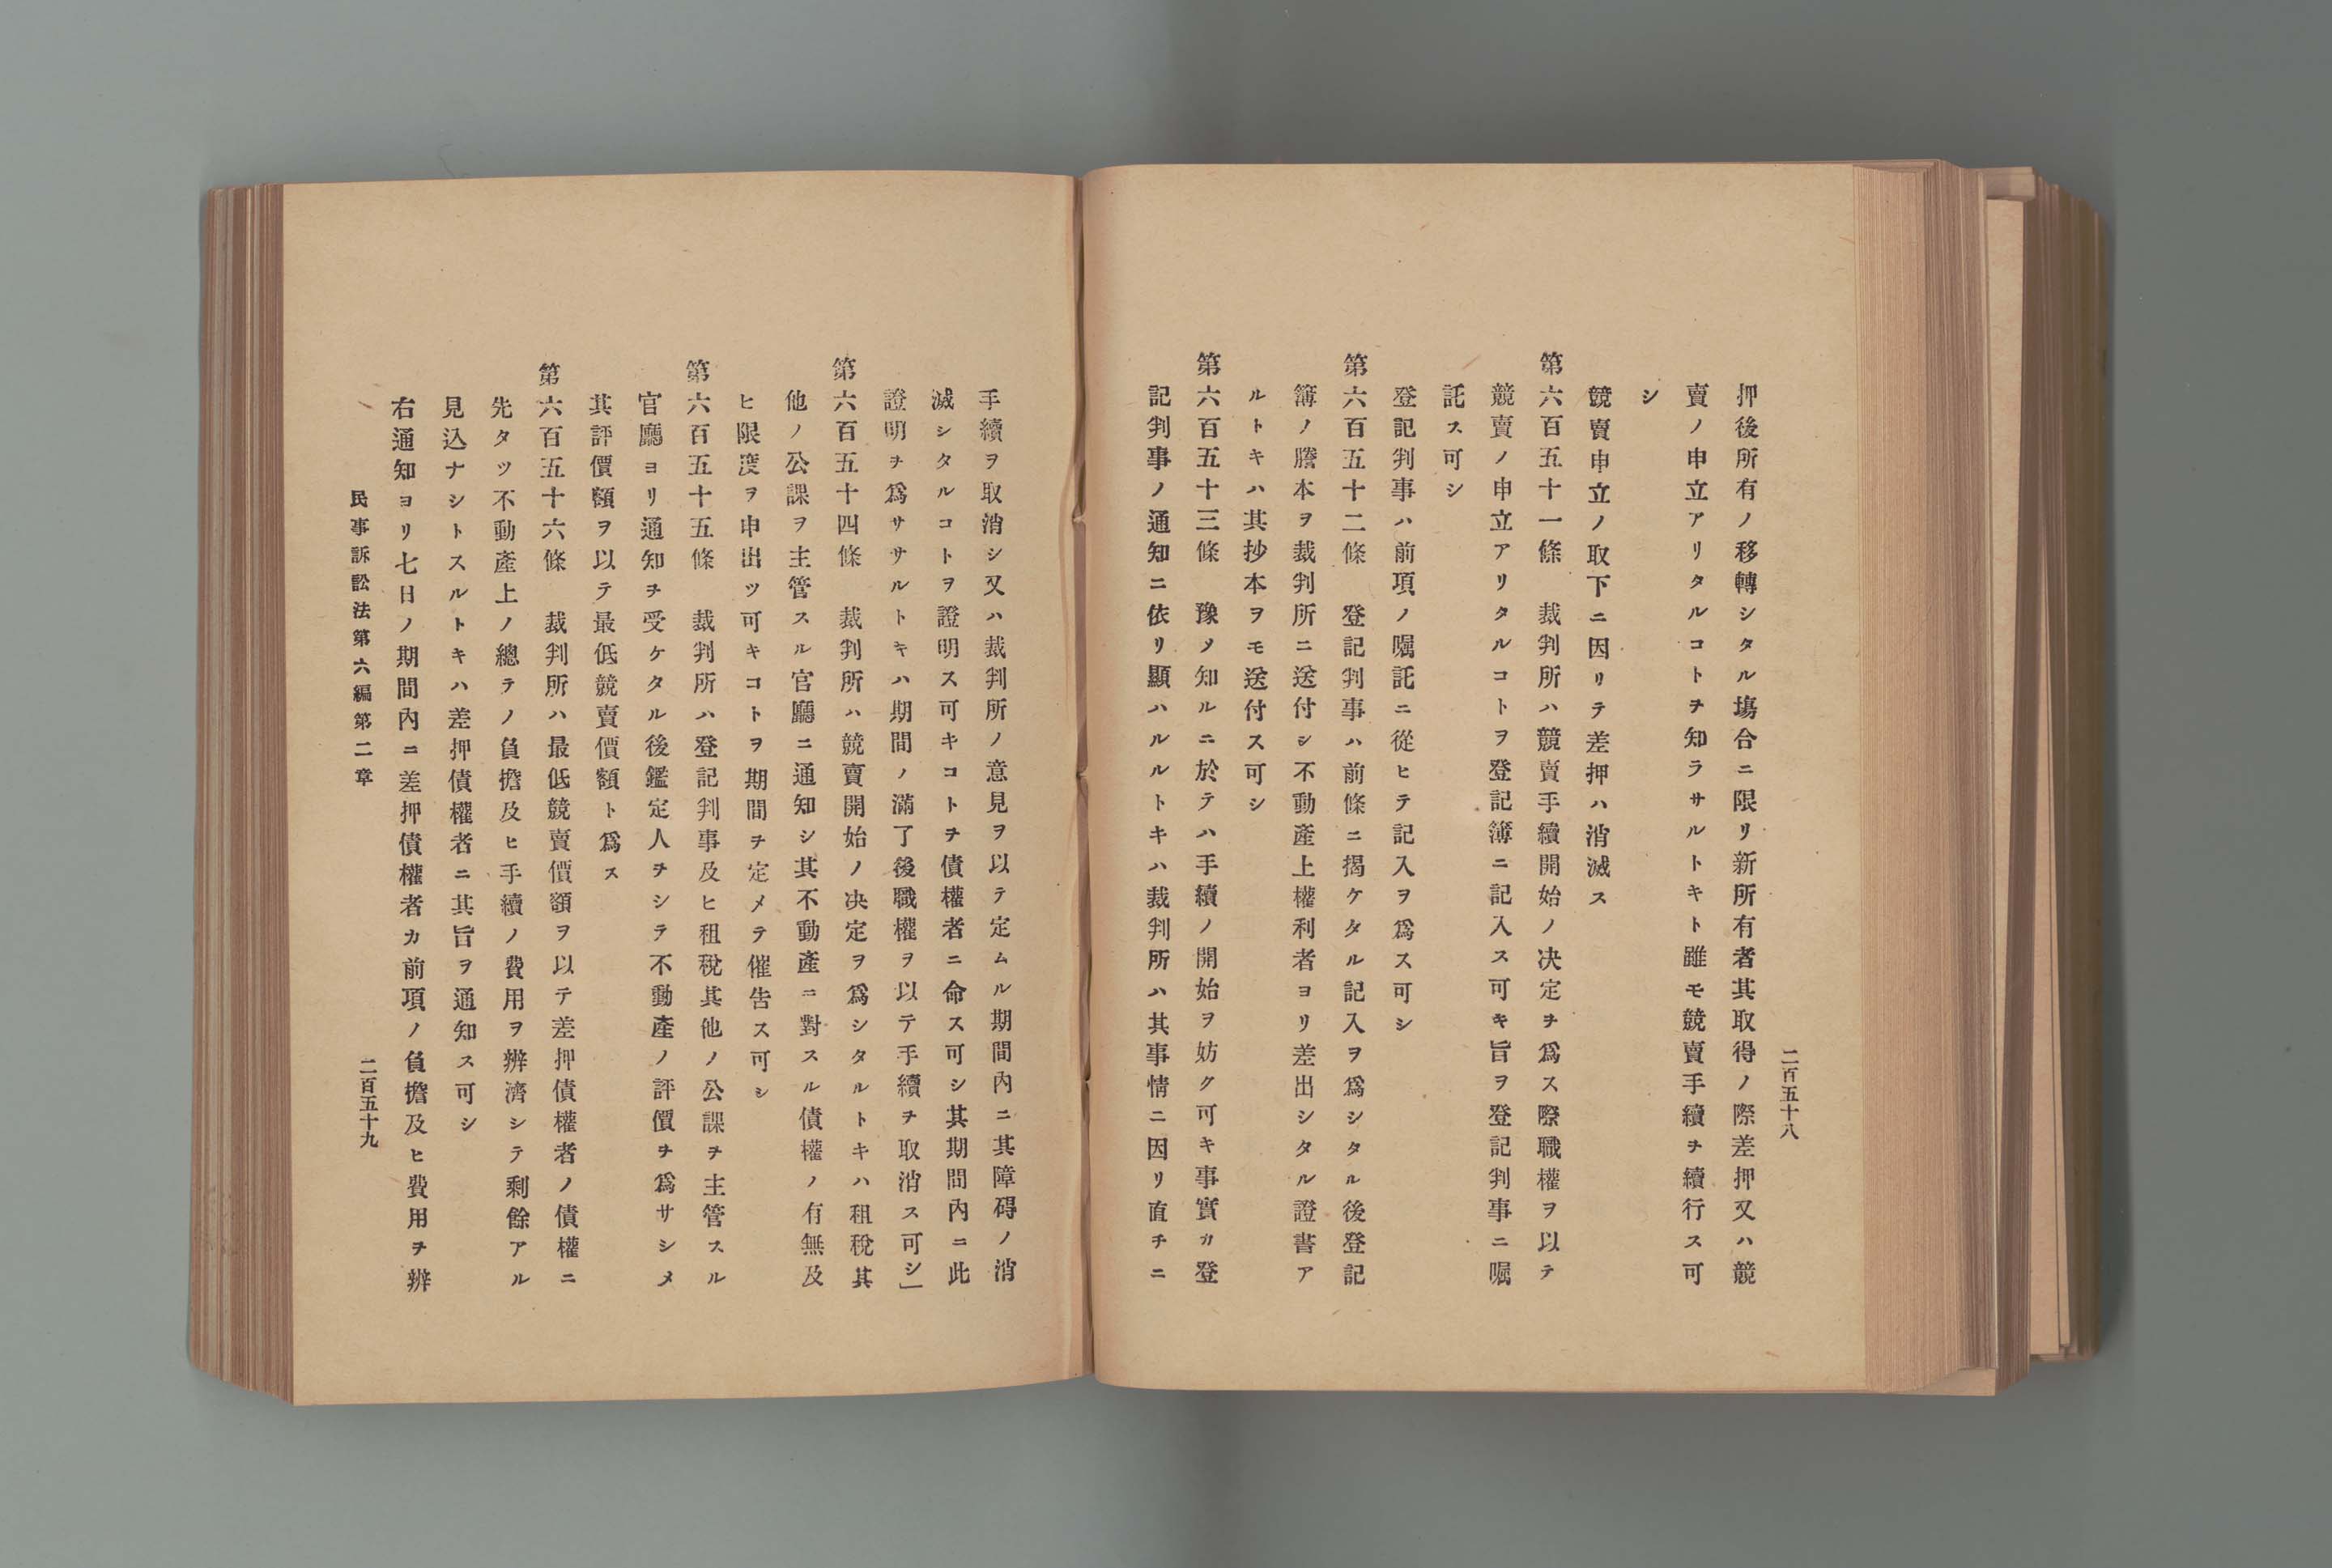 二百五十八
押後所有ノ移轉シタル塲合ニ限リ新所有者其取得ノ際差押又ハ競
賣ノ申立アリタルコトヲ知ラサルトキト雖モ競賣手續ヲ續行ス可
シ
競賣申立ノ取下ニ因リテ差押ハ消滅ス
第六百五十一條　裁判所ハ競賣手續開始ノ决定ヲ爲ス際職權ヲ以テ
競賣ノ申立アリタルコトヲ登記簿ニ記入ス可キ旨ヲ登記判事ニ囑
託ス可シ
登記判事ハ前項ノ囑託ニ從ヒテ記入ヲ爲ス可シ
第六百五十二條　登記判事ハ前條ニ揭ケタル記入ヲ爲シタル後登記
簿ノ謄本ヲ裁判所ニ送付シ不動產上權利者ヨリ差出シタル證書ア
ルトキハ其抄本ヲモ送付ス可シ
第六百五十三條　豫メ知ルニ於テハ手續ノ開始ヲ妨ク可キ事實カ登
記判事ノ通知ニ依リ顯ハルルトキハ裁判所ハ其事情ニ因リ直チニ
手續ヲ取消シ又ハ裁判所ノ意見ヲ以テ定ムル期間內ニ其障碍ノ消
滅シタルコトヲ證明ス可キコトヲ債權者ニ命ス可シ其期間內ニ此
證明ヲ爲サヽルトキハ期間ノ滿了後職權ヲ以テ手續ヲ取消ス可シ」
第六百五十四條　裁判所ハ競賣開始ノ决定ヲ爲シタルトキハ租稅其
他ノ公課ヲ主管スル官廳ニ通知シ其不動產ニ對スル債權ノ有無及
ヒ限度ヲ申出ツ可キコトヲ期間ヲ定メテ催吿ス可シ
第六百五十五條　裁判所ハ登記判事及ヒ租稅其他ノ公課ヲ主管スル
官廳ヨリ通知ヲ受ケタル後鑑定人ヲシテ不動產ノ評價ヲ爲サシメ
其評價額ヲ以テ最低競賣價額ト爲ス
第六百五十六條　裁判所ハ最低競賣價額ヲ以テ差押債權者ノ債權ニ
先タツ不動產上ノ總テノ負擔及ヒ手續ノ費用ヲ辨濟シテ剩餘アル
見込ナシトスルトキハ差押債權者ニ其旨ヲ通知ス可シ
右通知ヨリ七日ノ期間內ニ差押債權者カ前項ノ負擔及ヒ費用ヲ辨
民事訴訟法第六編第二章
二百五十九